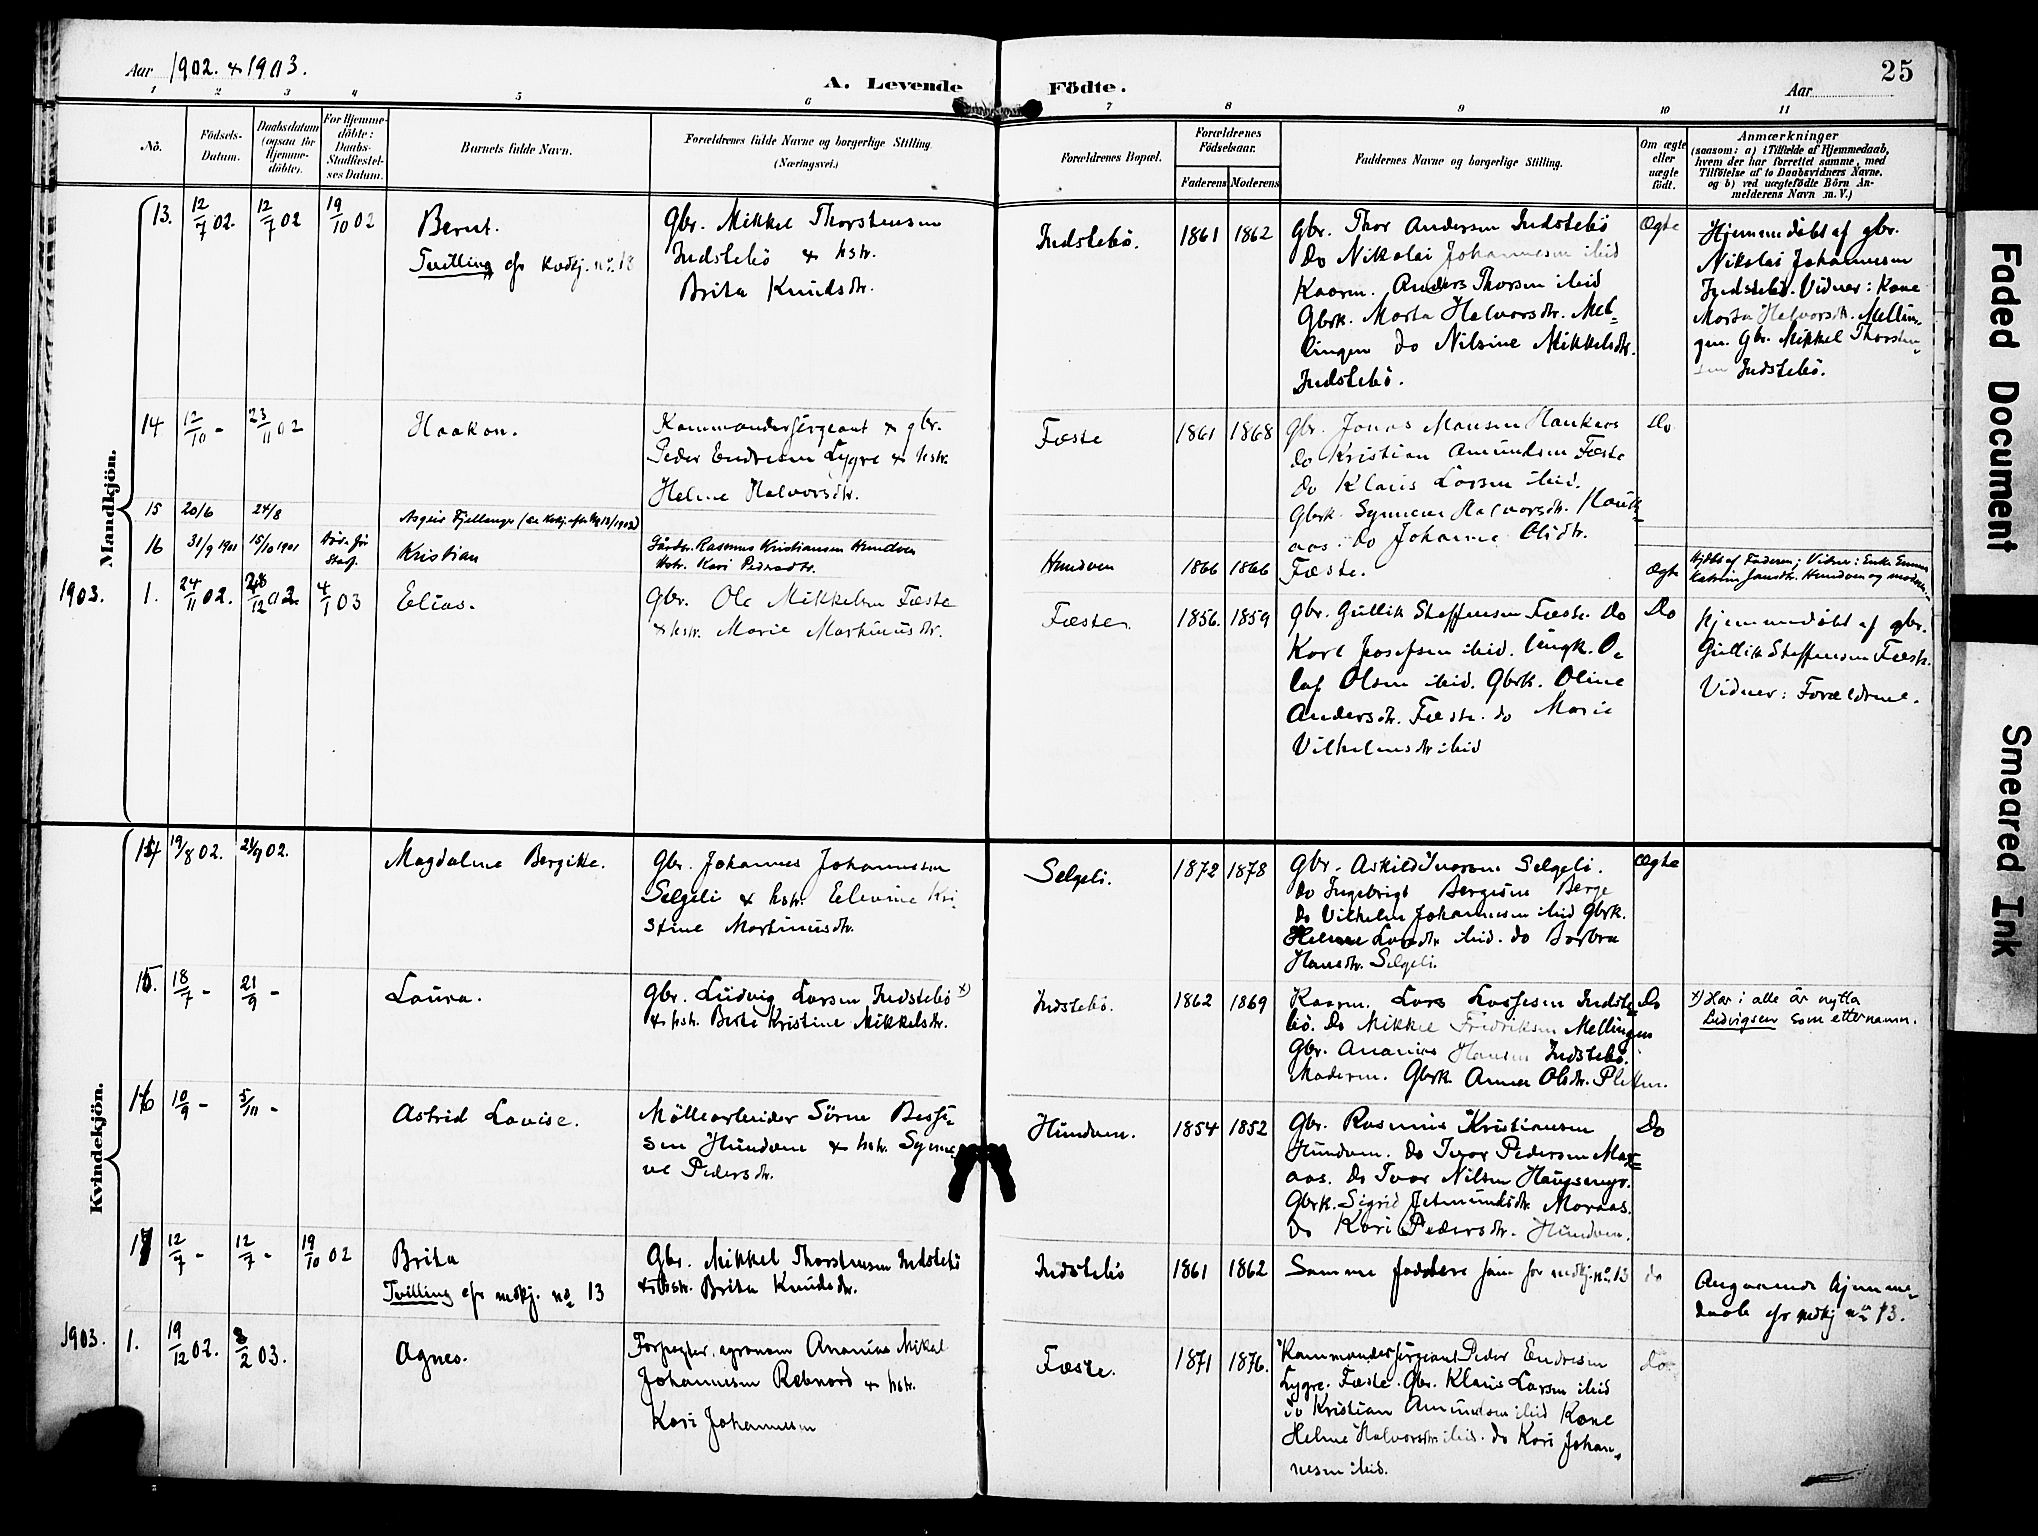 Aar 1902. & 1903.
A. Levende Födte.
Aar
25
1 2 3 4 5 6 7 8 9 10 11
Nö.
Födsels-Datum.
Daabsdatum (ogsaa for Hjemme-döbte).
For Hjemme-döbte: Daabs-Stadfæstel-ses Datum.
Barnets fulde Navn.
Forældrenes fulde Navne og borgerlige Stilling. (Næringsvei.)
Forældrenes Bopæl.
Forældrenes Födselsaar.
Faderens Moderens
Faddernes Navne og borgerlige Stilling.
Om ægte eller uægte födt.
Anmærkninger
(saasom: a) i Tilfælde af Hjemmedaab,
hvem der har forrettet samme, med
Tilföielse af to Daabsvidners Navne,
og b) ved uægtefödte Börn An-
melderens Navn m. V.)
Mandkjön.
13. 12/7 02. 12/7 02 19/10 02
Bernt.
Tvilling cfr kvdkj. no. 18
Gbr. Mikkel Thorstensen
Indstebö & hstr.
Brita Knudsdtr.
Indstebö. 1861 1862
Gbr. Thor Andersen Indstebö
do Nikolai Johannesen ibid
Kaarm. Anders Thorsen ibid
Gbrk. Marta Halvorsdtr. Mel-
lingen do Nilsine Mikkelsdtr.
Indstebö.
Ægte
Hjemmedöbt af gbr.
Nikolai Johannesen
Indstebö. Vidner: Kone
Marta Halvorsdtr. Mellin-
gen. Gbr. Mikkel Thorsten-
sen Indstebö.
14 12/10 - 23/11 02
Haakon.
Kommandersergeant & gbr.
Peder Endresen Lygre & hstr.
Helene Halvorsdtr.
Fæste 1861 1868
Gbr. Jonas Monsen Haukaas
do Kristian Amundsen Fæste
do Klaus Larsen ibid.
Gbrk. Synneve Halvorsdtr. Hauk-
aas. do Johanna Olsdtr.
Fæste.
Do
15 20/6 24/8
Asgeir Fjellanger
16 31/9 1901 15/10 1901 död för Stadf.
Kristian
Gårdbr. Rasmus Kristiansen Hundven
Hstr. Kari Pedersdtr.
Hundven 1866 1866
Ægte
Hjdbt af Faderen; Vidner: Enke Emma
Katrin Jansdtr. Hundven og moderen
1903. 1. 24/11 02. 28/12 02. 4/1 03
Elias.
Gbr. Ole Mikkelsen Fæste
& hstr. Marie Martinusdtr.
Fæste. 1856. 1859
Gbr. Gullik Steffensen Fæste. do
Karl Josefsen ibid. Ungk. O-
laf Olsen ibid. Gbrk. Oline
Andersdtr. Fæste. do Marie
Vilhelmsdtr ibid
Do
Hjemmedöbt af gbr.
Gullik Steffensen Fæste.
Vidner: Forældrene.
Kvindekjön.
14 19/8 02. 21/9 02.
Magdalene Bergitte.
Gbr. Johannes Johannessen
Selgeli & hstr. Elevine Kri-
stine Martinusdtr.
Selgeli. 1872 1878
Gbr. Askild Ivarsen Selgeli.
do Ingebrigt Bergesen Berge
do Vilhelm Johannesen ibid Gbrk.
Helene Larsdtr ibid. do Barbra
Hansdtr. Selgeli.
Ægte
15. 18/7 - 21/9 -
Laura.
Gbr. Ludvig Larsen Indstebö x)
& hstr. Berte Kristine Mikkelsdtr.
Indstebö. 1862 1869
Kaarm. Lars Lassesen Indste-
bö. do Mikkel Fredriksen Mellingen
Gbr. Ananias Hansen Indstebö.
Moderen. Gbrk. Anna Olsdtr. Pletten.
Do
x) Har i alle år nytta
Ludvigsen som etternamn.
16 10/9 - 5/11 -
Astrid Lovise.
Möllearbeider Sörne Besse-
sen Hundven & hstr. Synne-
ve Pedersdtr.
Hundven. 1854 1852
Gbr. Rasmus Kristiansen
Hundven. do Ivar Pedersen Mar-
aas. do Ivar Nilsen Haugsmyr.
Gbrk. Sigrid Jetmundsdtr. Moraas.
do Kari Pedersdtr. Hundven.
Do
17 12/7 - 12/7 - 19/10 02
Brita
Tvilling cfr mdkj. no 13
Gbr. Mikkel Thorstensen Indstebö
& hstr. Brita Knudsdtr.
Indstebö 1861 1862
Samme faddere som for mdkj. no. 13
do
Angaaende hjemme-
daab cfr mdkj no 13.
1903. 1. 19/12 02. 8/2 03.
Agnes.
Forpagter, agronom Ananias Mikal
Johannesen Rebnord & hstr.
Kari Johannessen
Fæste. 1871 1876.
Kommandersergeant Peder Endresen
Lygre. Fæste. Gbr. Klaus Larsen ibid
do Kristian Amundsen ibid Kone
Helene Halvorsdtr ibid. do Kari Johan-
nesen ibid.
do
Faded Document
Smeared Ink